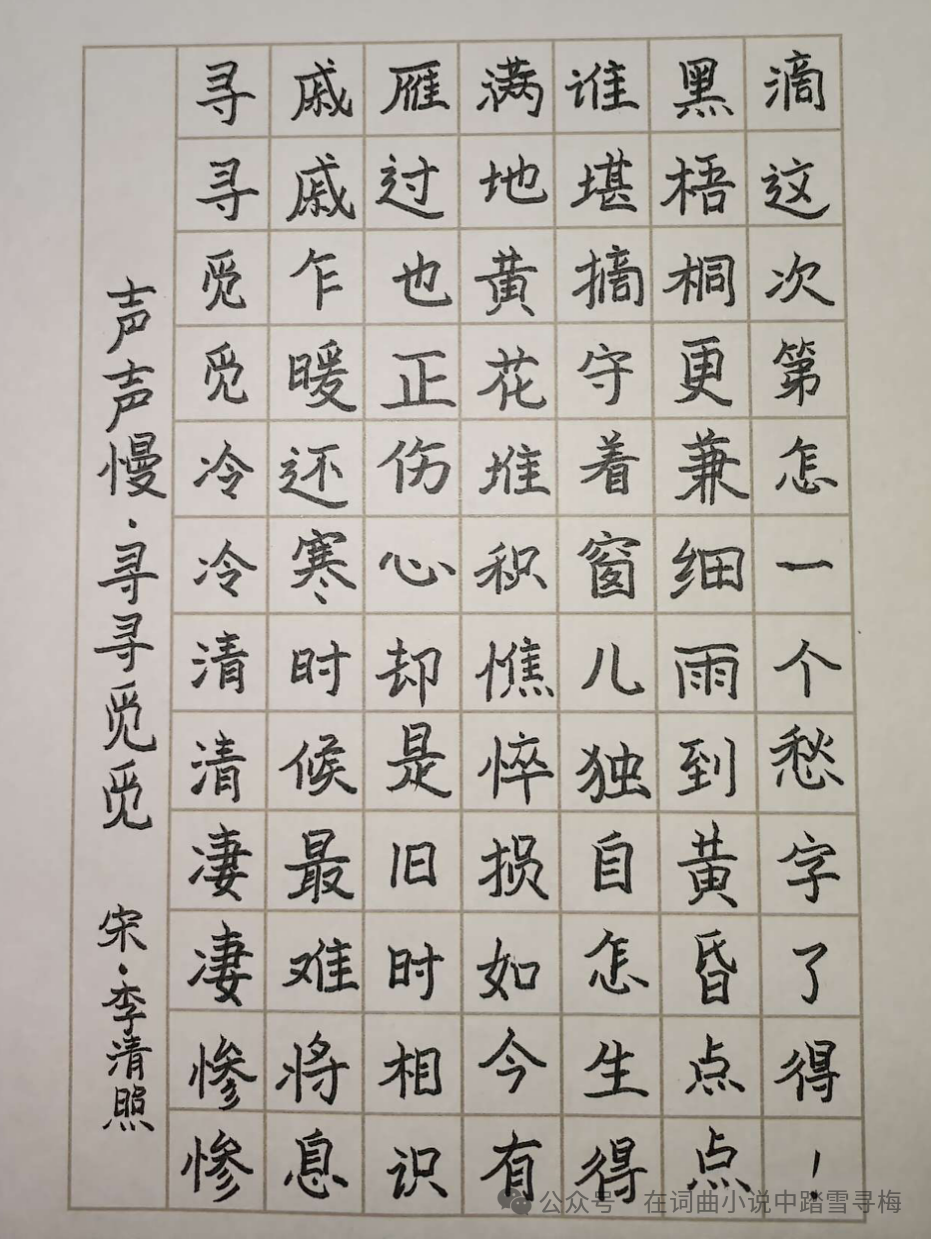 声声慢·寻寻觅觅 宋·李清照
寻寻觅觅冷冷清清凄凄惨惨
戚戚乍暖还寒时候最难将息
雁过也正伤心却是旧时相识
满地黄花堆积憔悴损如今有
谁堪摘守着窗儿独自怎生得
黑梧桐更兼细雨到黄昏点点
滴这次第怎一个愁字了得!
公众号 在词曲小说中踏雪寻梅